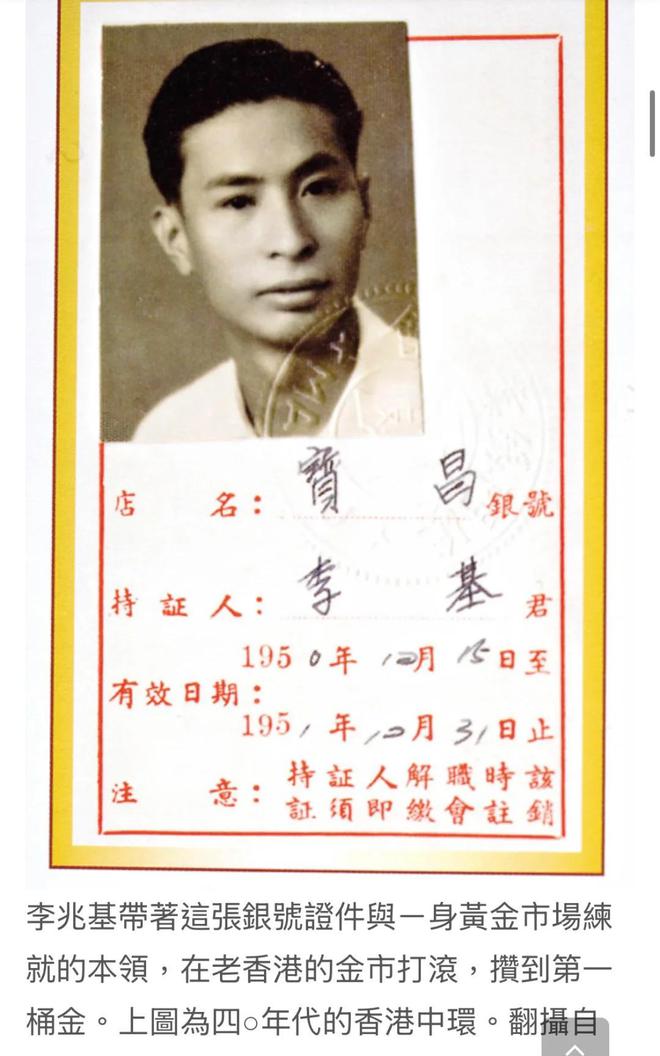 店名：寶昌銀號
持証人：李基君
1950年12月15日至
有效日期：
1951年12月31日止
注意：持証人解職時該
証須即繳會註銷
李兆基帶著這張銀號證件與一身黃金市場練
就的本領，在老香港的金市打滾，攢到第一
桶金。上圖為四○年代的香港中環。翻攝自